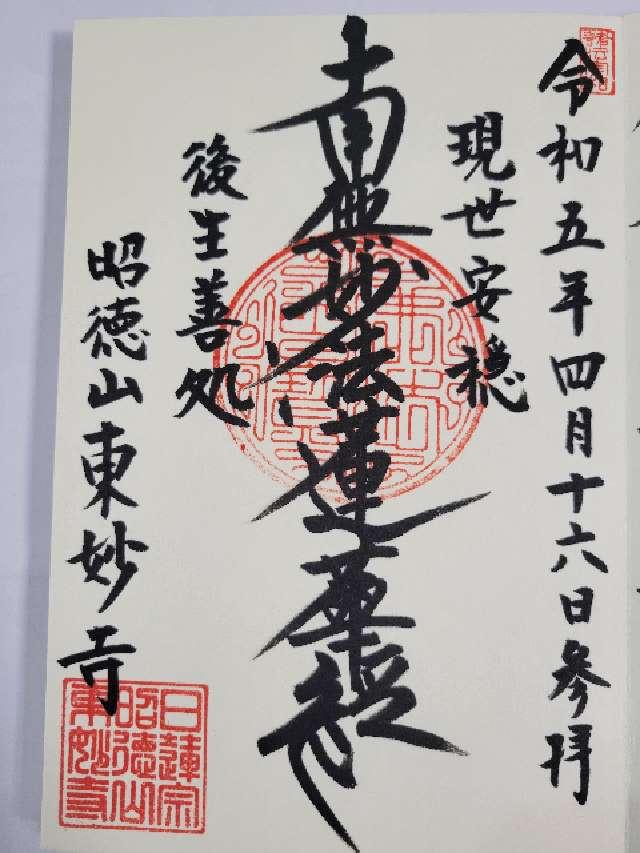 令和五年四月十六日参拝
現世安穏
南無妙法蓮華経
後生善処
昭徳山東妙寺
日蓮宗
昭徳山
東妙寺